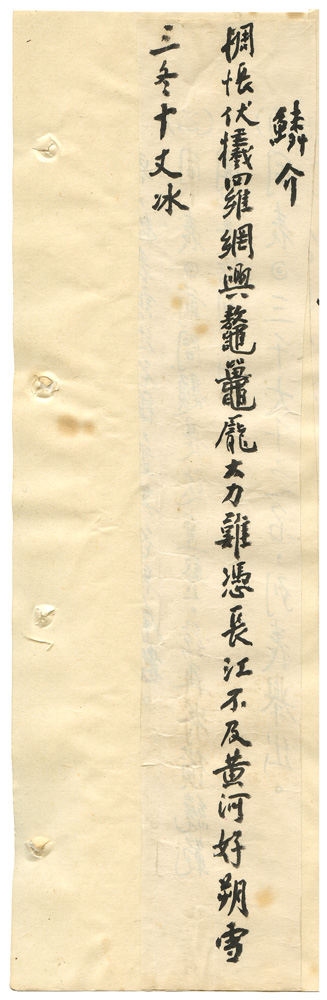 鱗介
惆悵伏犧羅網興鼇鼉龐大力難憑長江不及黃河好朔雪
三冬十丈冰